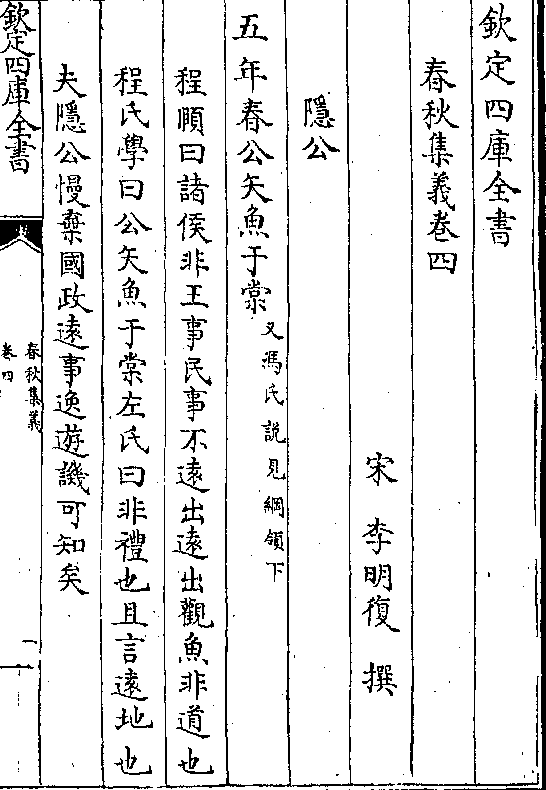 欽定四庫全書
春秋集義卷四
宋 李明復 撰
隱公
五年春公矢魚于棠又馮氏説見綱領下
程頤曰諸侯非王事民事不遠出遠出觀魚非道也
程氏學曰公矢魚于棠左氏曰非禮也且言遠地也
夫隱公慢棄國政遠事逸遊譏可知矣
欽定四庫全書
春秋集義
卷四
一